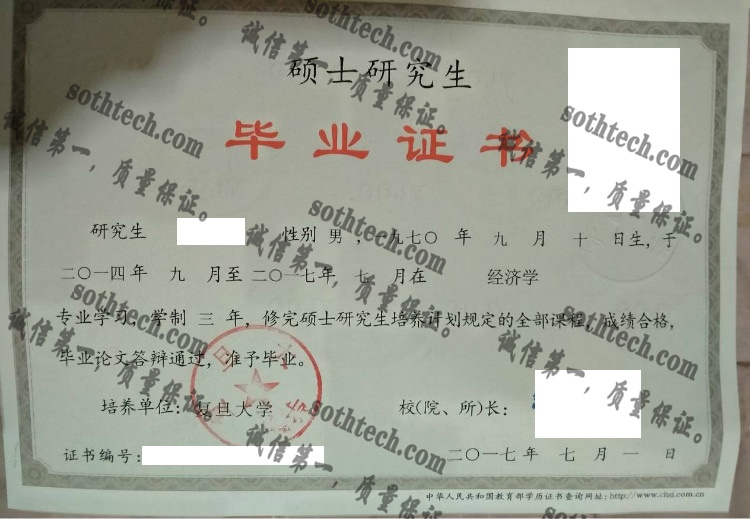 硕士研究生
毕业证书
研究生 性别 男 ，一九七〇 年 九 月 十 日生，于
二〇一四年 九 月至二〇一七年 七 月在 经济学
专业学习，学制 三 年，修完硕士研究生培养计划规定的全部课程，成绩合格，
毕业论文答辩通过，准予毕业。
培养单位：复旦大学 校(院、所)长：
证书编号： 二〇一七年 七 月 一 日
中华人民共和国教育部学历证书查询网址：http://www.chsi.com.cn
sothtech.com
诚信第一，质量保证。
sothtech.com
诚信第一，质量保证。
sothtech.com
诚信第一，质量保证。
sothtech.com
诚信第一，质量保证。
sothtech.com
诚信第一，质量保证。
sothtech.com
诚信第一，质量保证。
sothtech.com
诚信第一，质量保证。